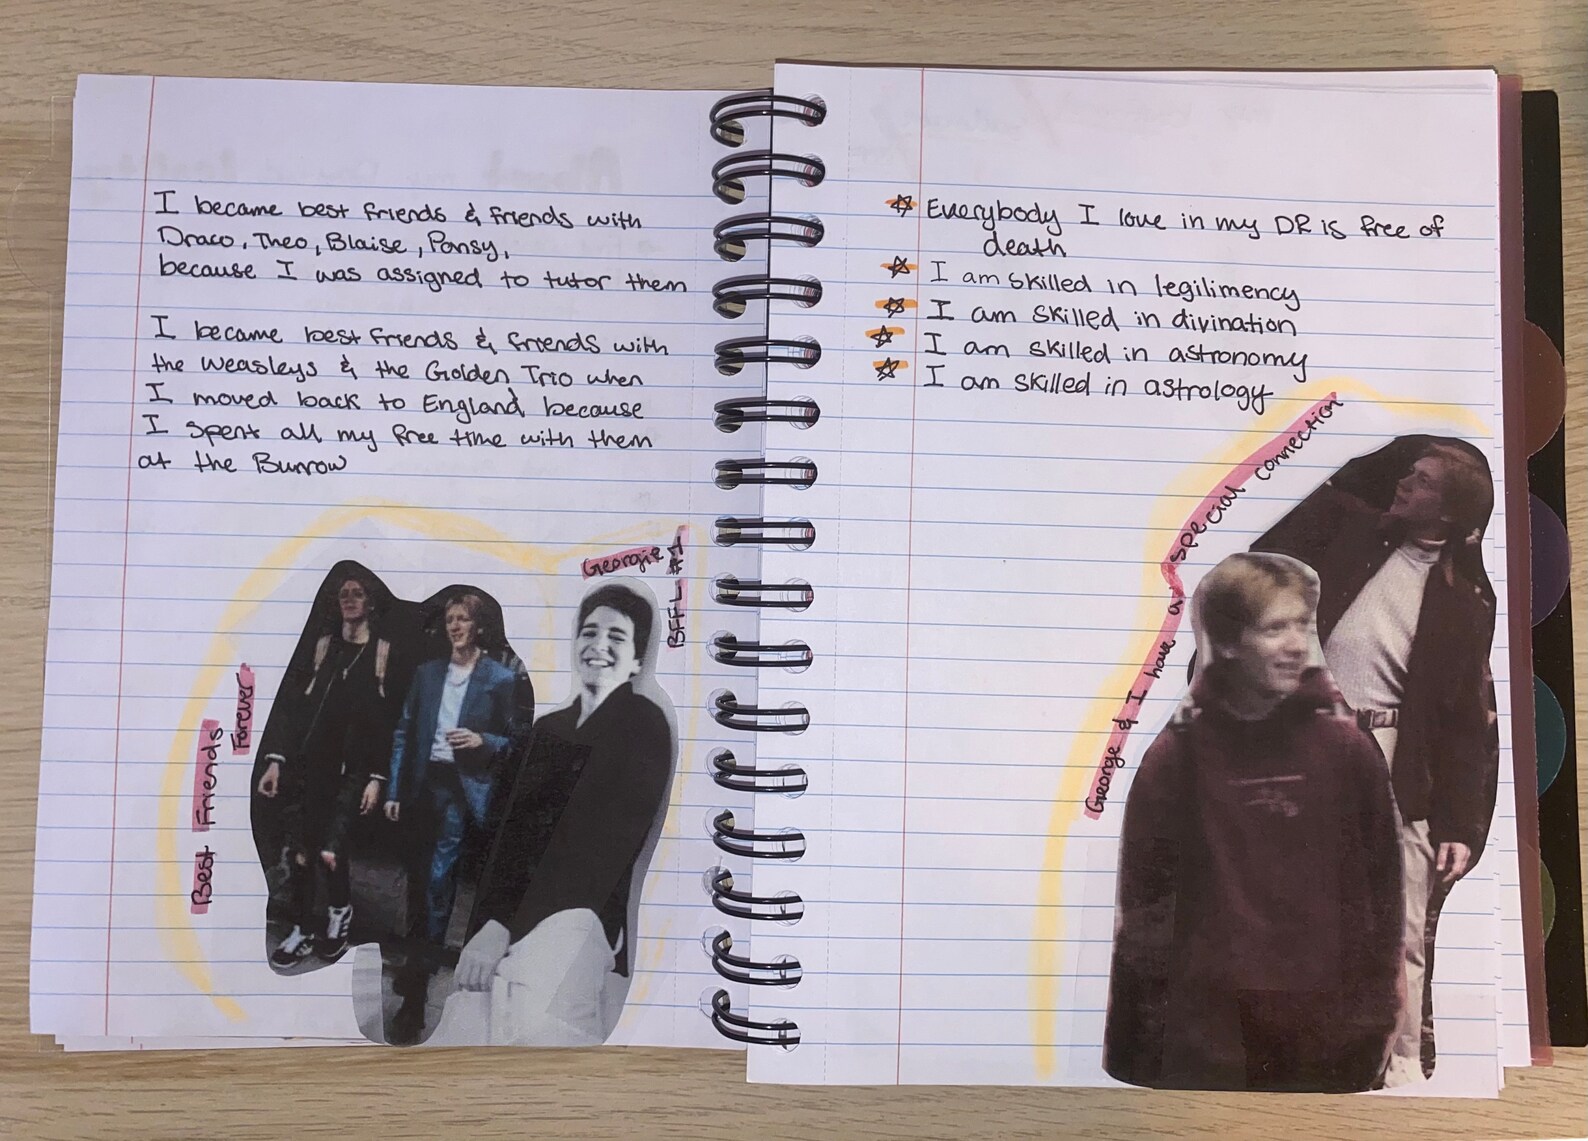 I became best friends & friends with
Draco, Theo, Blaise, Pansy,
because I was assigned to tutor them
I became best friends & friends with
the Weasleys & the Golden Trio when
I moved back to England because
I spent all my free time with them
at the Burrow
Best Friends
Forever
Georgie
BFFL #1
Everybody I love in my DR is free of
death
I am skilled in legilimency
I am skilled in divination
I am skilled in astronomy
I am skilled in astrology
George & I have a special connection